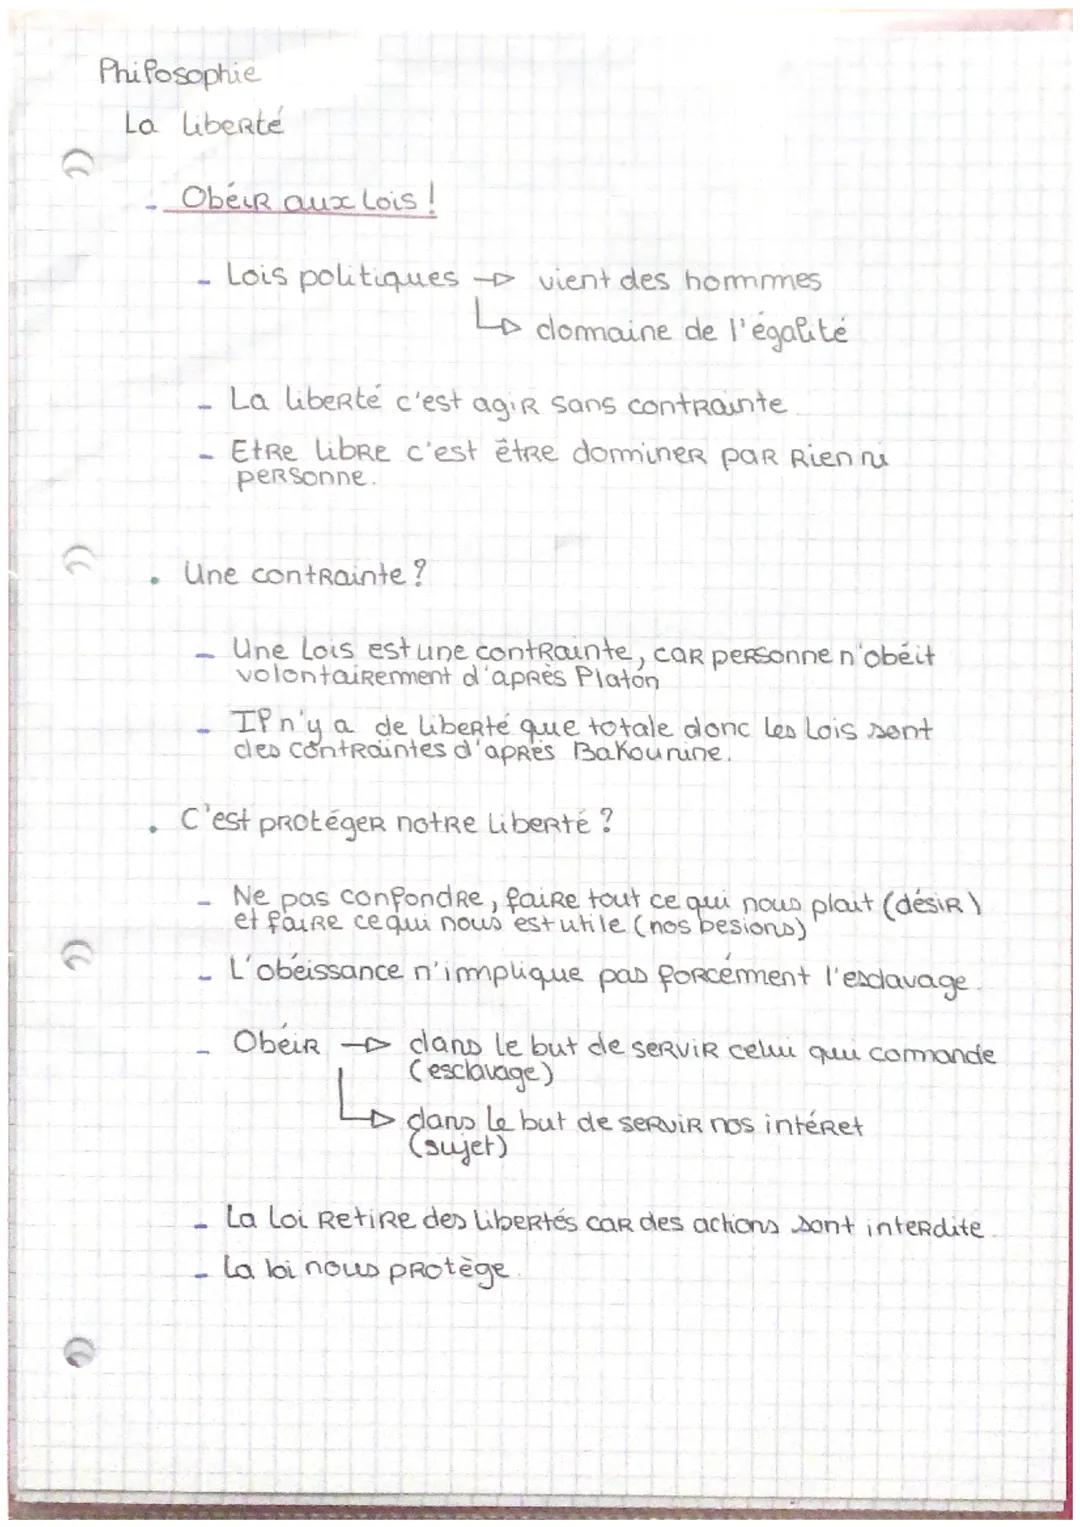 Philosophie
La liberté
- Obéir aux lois !
- Lois politiques → vient des hommmes
↳ dommaine de l'égalité
- La liberté c'est agir sans contrainte.
- Etre libre c'est être dominer par rien ni
personne.
• Une contrainte ?
- Une Lois est une contrainte, car personne n'obéit
volontairemment d'après Platon
- Il n'y a de liberté que totale donc les lois sont
des contraintes d'après Bakounine.
• C'est protéger notre liberté ?
- Ne pas confondre, faire tout ce qui nous plait (désir)
et faire ce qui nous est utile (nos besions)
- L'obéissance n'implique pas forcémment l'esclavage.
- Obéir → dans le but de servir celui qui commande
(esclavage)
↳ dans le but de servir nos intéret
(sujet)
- La loi retire des libertés car des actions sont interdite.
- La loi nous protège.